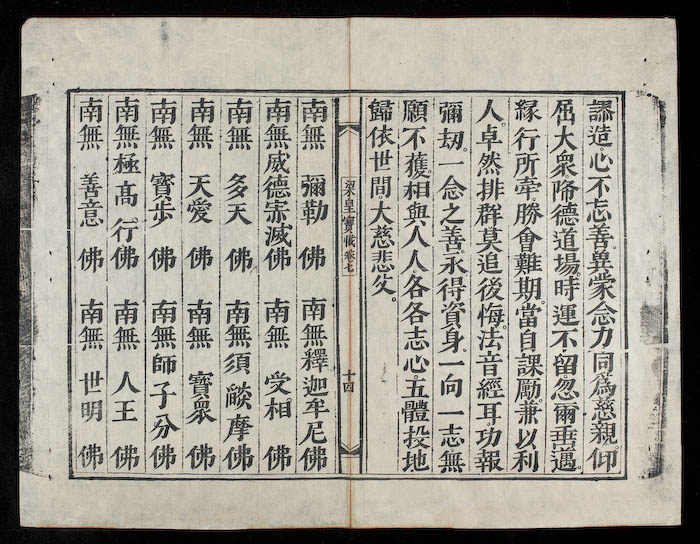 謬造。心不忘善。異蒙念力。同為慈親。仰
屈大眾。降德道場。時運不留。忽爾垂邁。
緣行所牽。勝會難期。當自課勵。兼以利
人。卓然排群。莫追後悔。法音經耳。功報
彌劫。一念之善。永得資身。一向一志。無
願不獲。相與人人。各各志心。五體投地。
歸依世間大慈悲父。
梁皇寶懺卷七
十四
南無 彌勒 佛 南無釋迦牟尼佛
南無威德宗滅佛 南無 受相 佛
南無 多天 佛 南無須燄摩佛
南無 天愛 佛 南無 寶眾 佛
南無 寶步 佛 南無師子分佛
南無極高行佛 南無 人王 佛
南無 善意 佛 南無 世明 佛